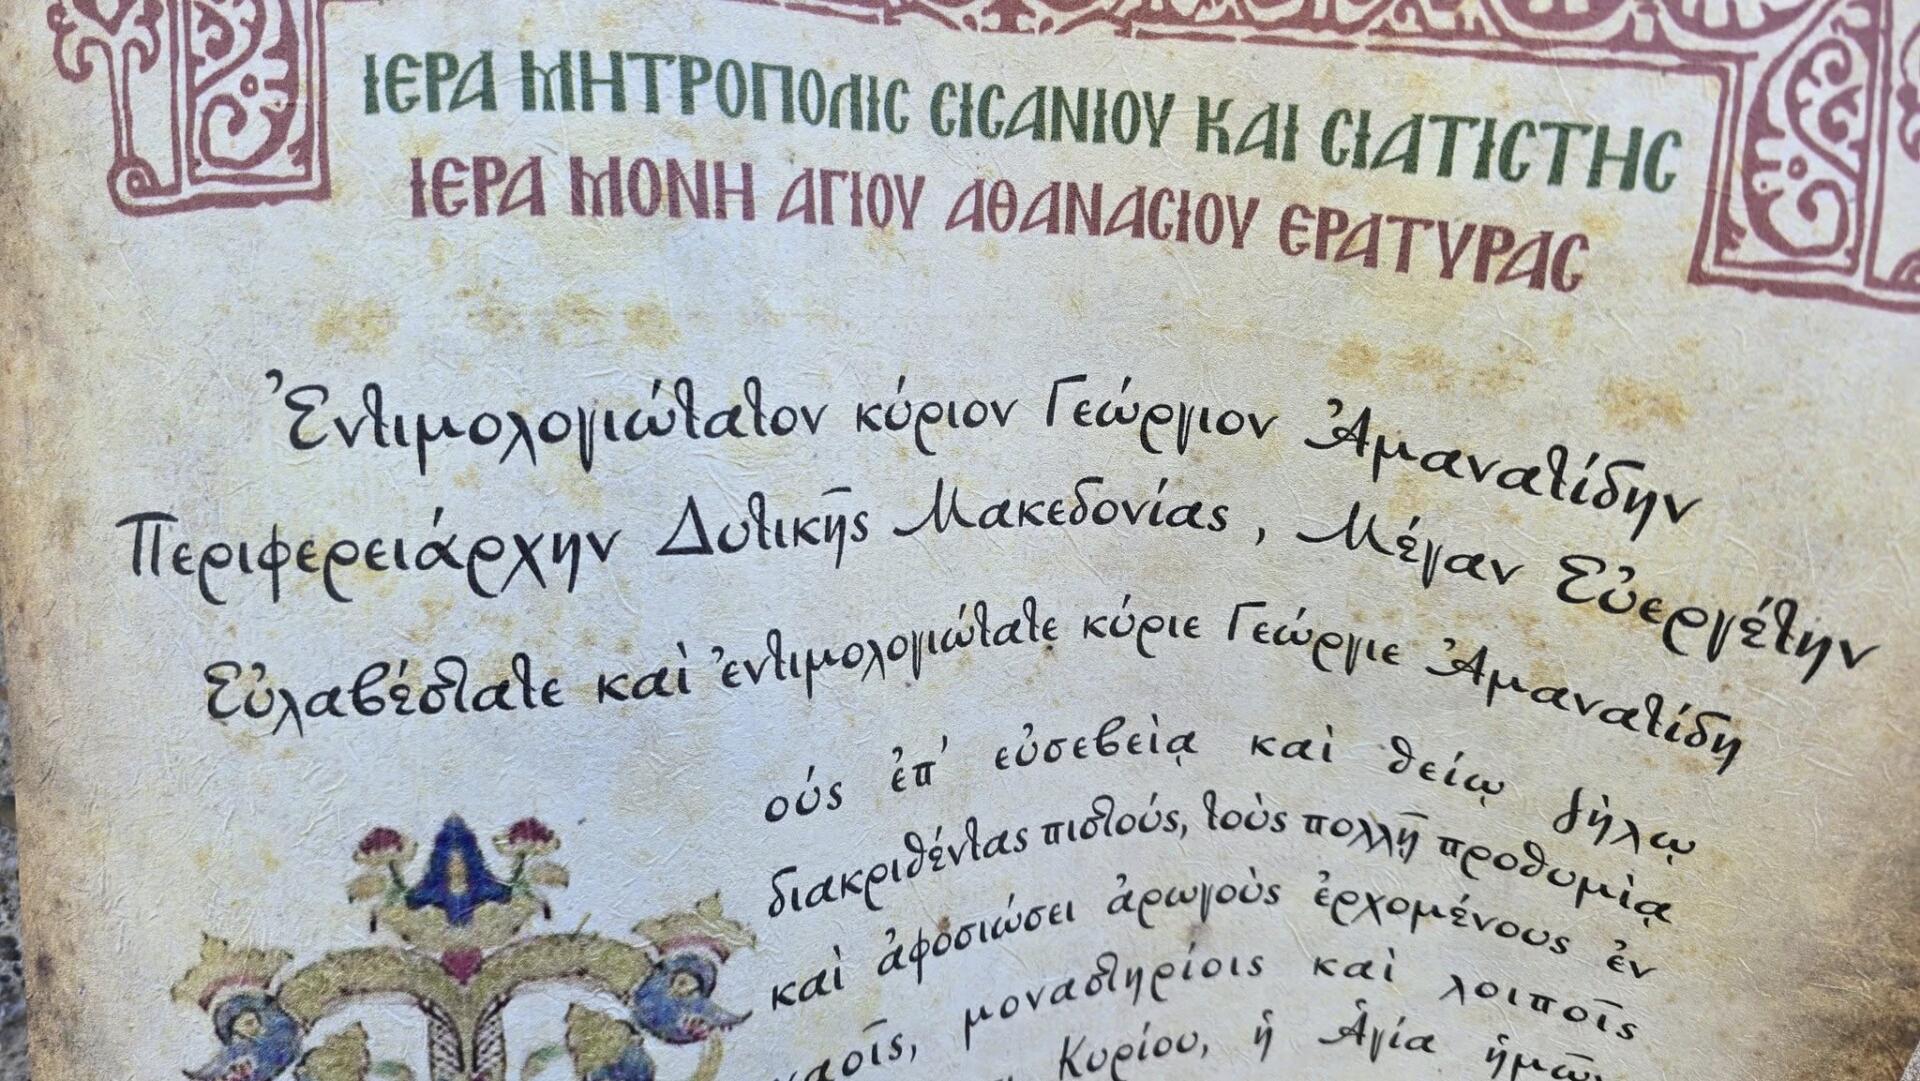 ΙΕΡΑ ΜΗΤΡΟΠΟΛΙΣ ΣΙΣΑΝΙΟΥ ΚΑΙ ΣΙΑΤΙΣΤΗΣ
ΙΕΡΑ ΜΟΝΗ ΑΓΙΟΥ ΑΘΑΝΑΣΙΟΥ ΕΡΑΤΥΡΑΣ
Ἐντιμολογιώτατον κύριον Γεώργιον Ἀμανατίδην
Περιφερειάρχην Δυτικῆς Μακεδονίας, Μέγαν Εὐεργέτην
Εὐλαβέστατε καὶ ἐντιμολογιώτατε κύριε Γεώργιε Ἀμανατίδη
οὑς ἐπ᾽ εὐσεβείᾳ καὶ θείῳ ζήλῳ
διακριθέντας πιστούς, τοὺς πολλῇ προθυμίᾳ
καὶ ἀφοσιώσει ἀρωγοὺς ἐρχομένους ἐν
μοναστηρίοις καὶ λοιποῖς
Κυρίου, ἡ Ἁγία ἡμῶν